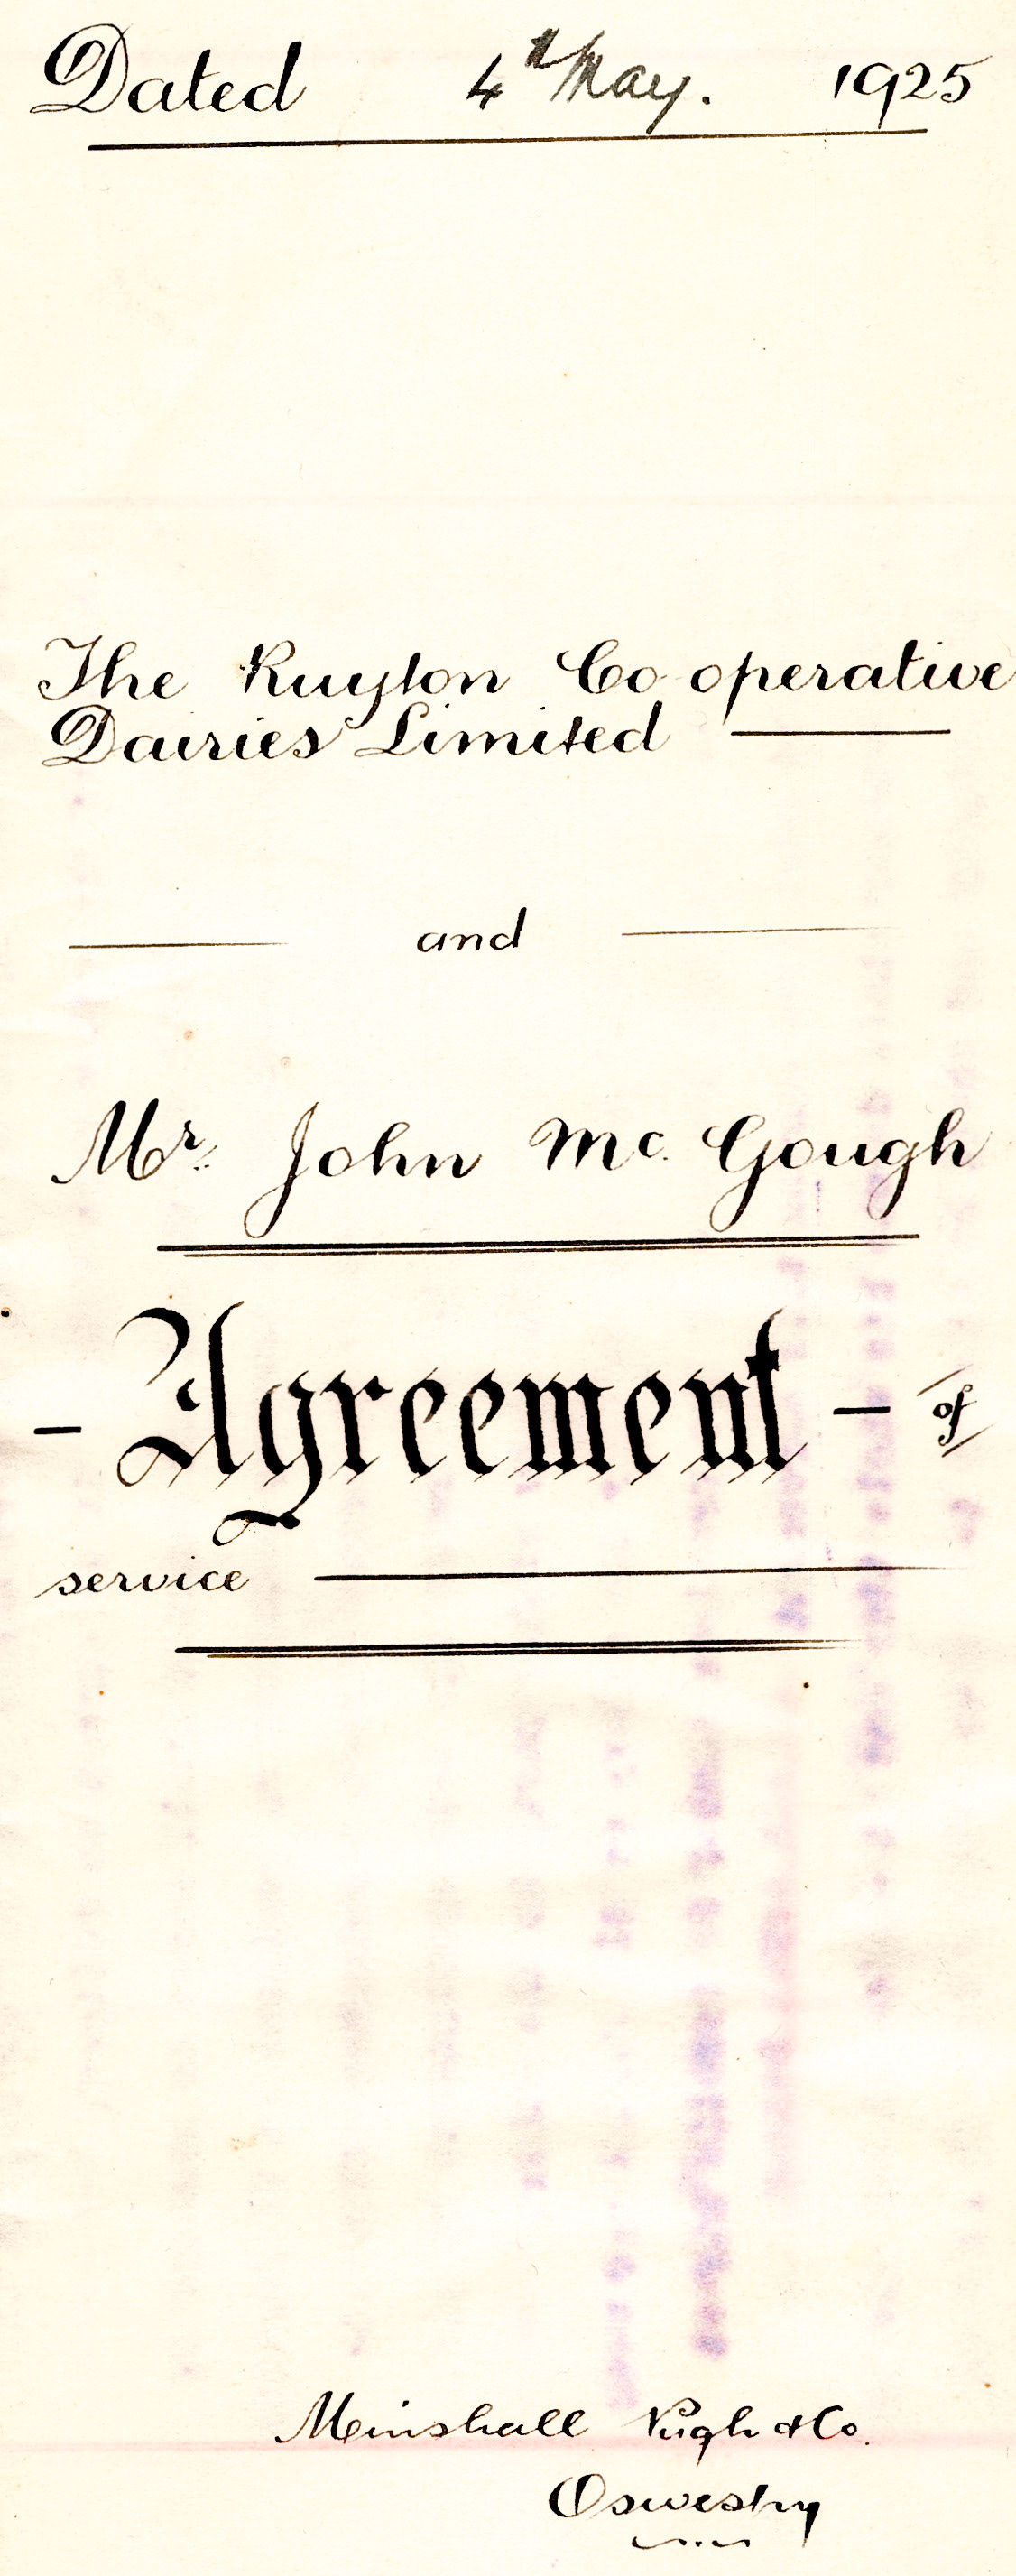 Dated 4th May. 1925
The Ruyton Co operative
Dairies Limited
and
Mr. John Mc. Gough
- Agreement - of
service
Minshall Pugh & Co.
Oswestry